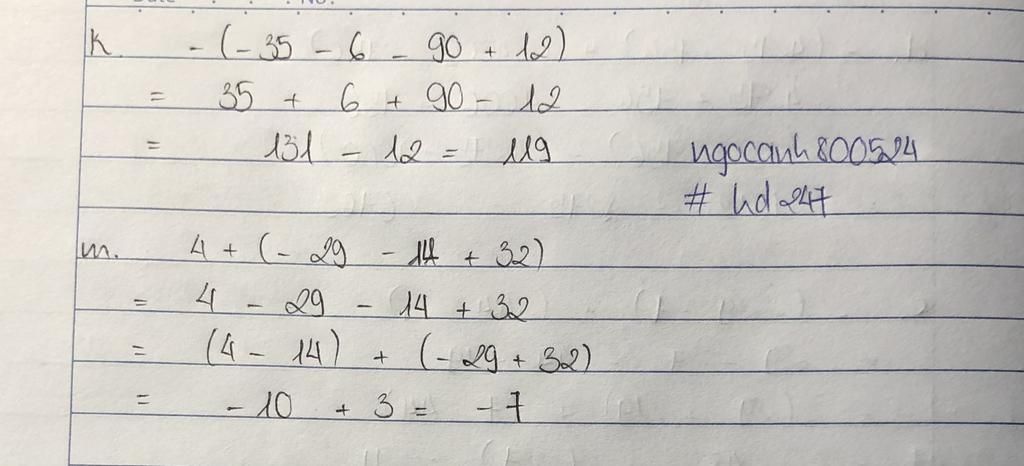 k. - (- 35 - 6 - 90 + 12)
= 35 + 6 + 90 - 12
= 131 - 12 = 119
ngocanh800524
# hd247
m. 4 + (- 29 - 14 + 32)
= 4 - 29 - 14 + 32
= (4 - 14) + (- 29 + 32)
= - 10 + 3 = - 7